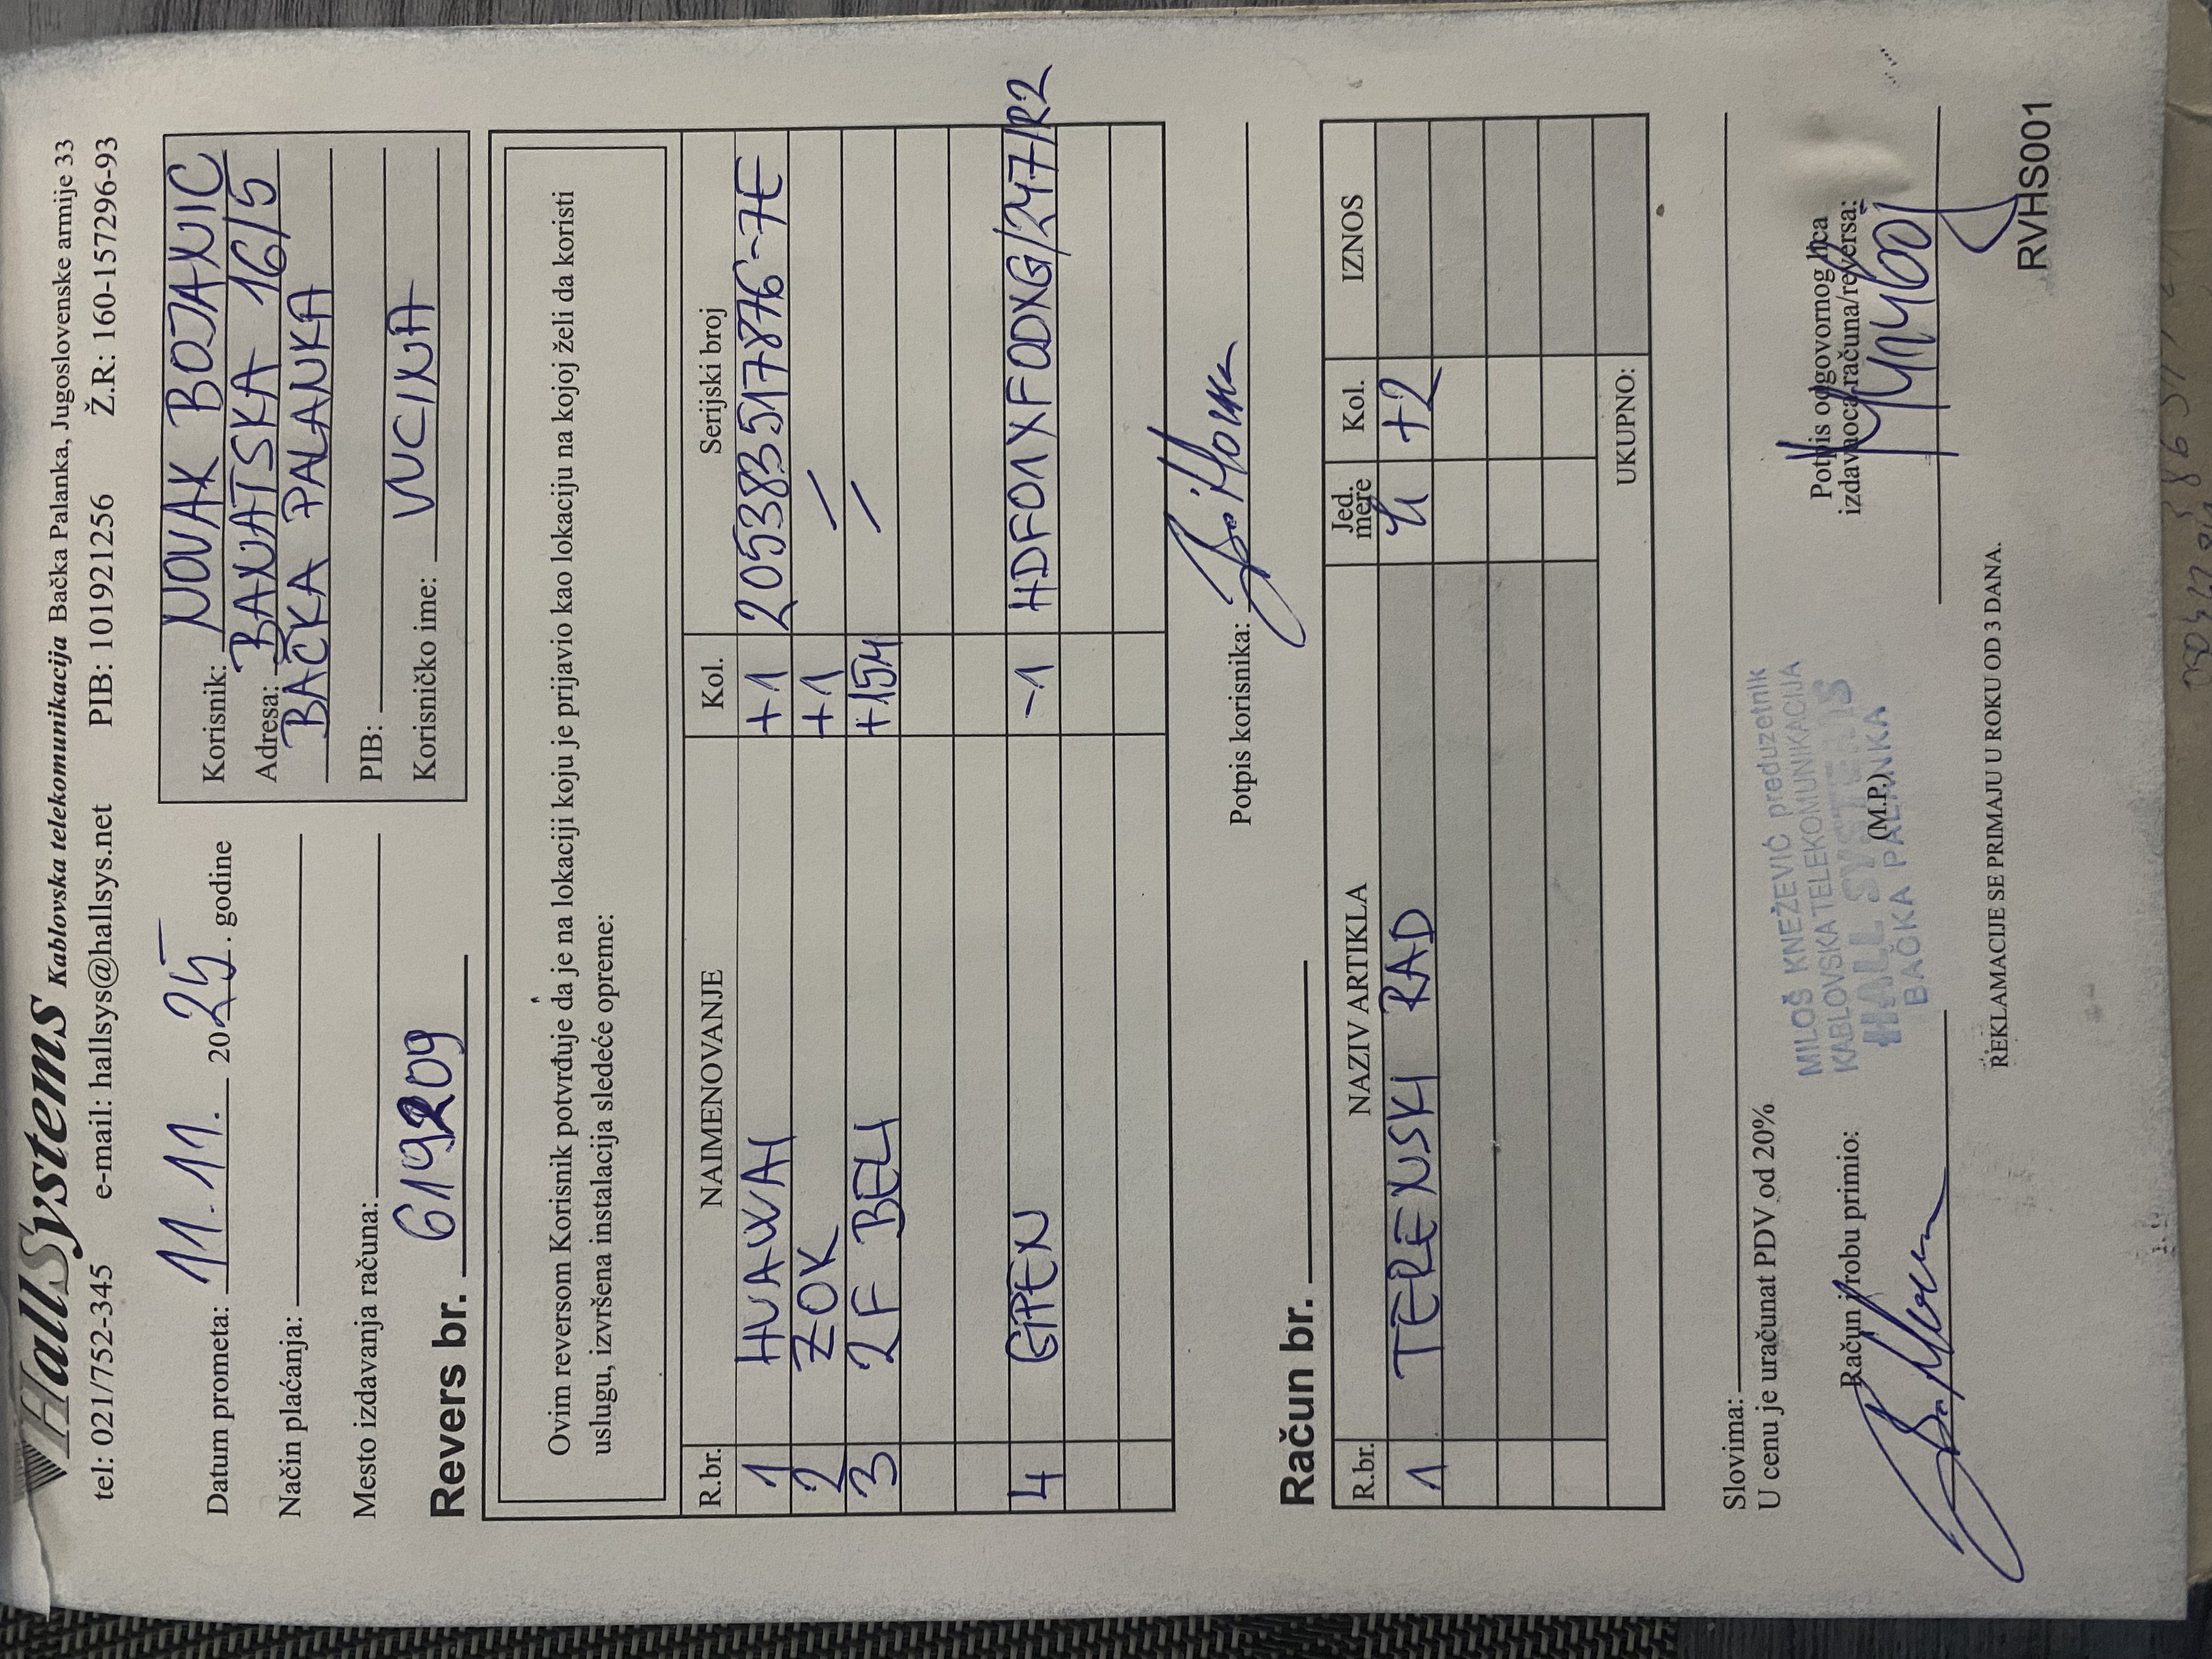 HallSystems Kablovska telekomunikacija Bačka Palanka, Jugoslovenske armije 33
tel: 021/752-345 e-mail: hallsys@hallsys.net PIB: 101921256 Ž.R: 160-157296-93
Datum prometa: 11.11. 2025. godine
Način plaćanja:
Mesto izdavanja računa:
Korisnik: NOVAK BOJANIC
Adresa: BANATSKA 16/5
BAČKA PALANKA
PIB:
Korisničko ime: VUCINA
Revers br. 619209
Ovim reversom Korisnik potvrđuje da je na lokaciji koju je prijavio kao lokaciju na kojoj želi da koristi
uslugu, izvršena instalacija sledeće opreme:
R.br. NAIMENOVANJE Kol. Serijski broj
1 HUAWAI +1 205383517876-7E
2 ZOK +1 /
3 2F BELI +15M /
4 GPEN -1 HDF01XFODXG/247/R2
Potpis korisnika:
Račun br.
R.br. NAZIV ARTIKLA Jed. mere Kol. IZNOS
1 TERENSKI RAD h +2
UKUPNO:
Slovima:
U cenu je uračunat PDV od 20%
Račun i robu primio:
MILOŠ KNEŽEVIĆ preduzetnik
KABLOVSKA TELEKOMUNIKACIJA
HALL SYSTEMS
BAČKA PALANKA
(M.P.)
Potpis odgovornog lica
izdavaoca računa/reversa:
REKLAMACIJE SE PRIMAJU U ROKU OD 3 DANA.
RVHS001